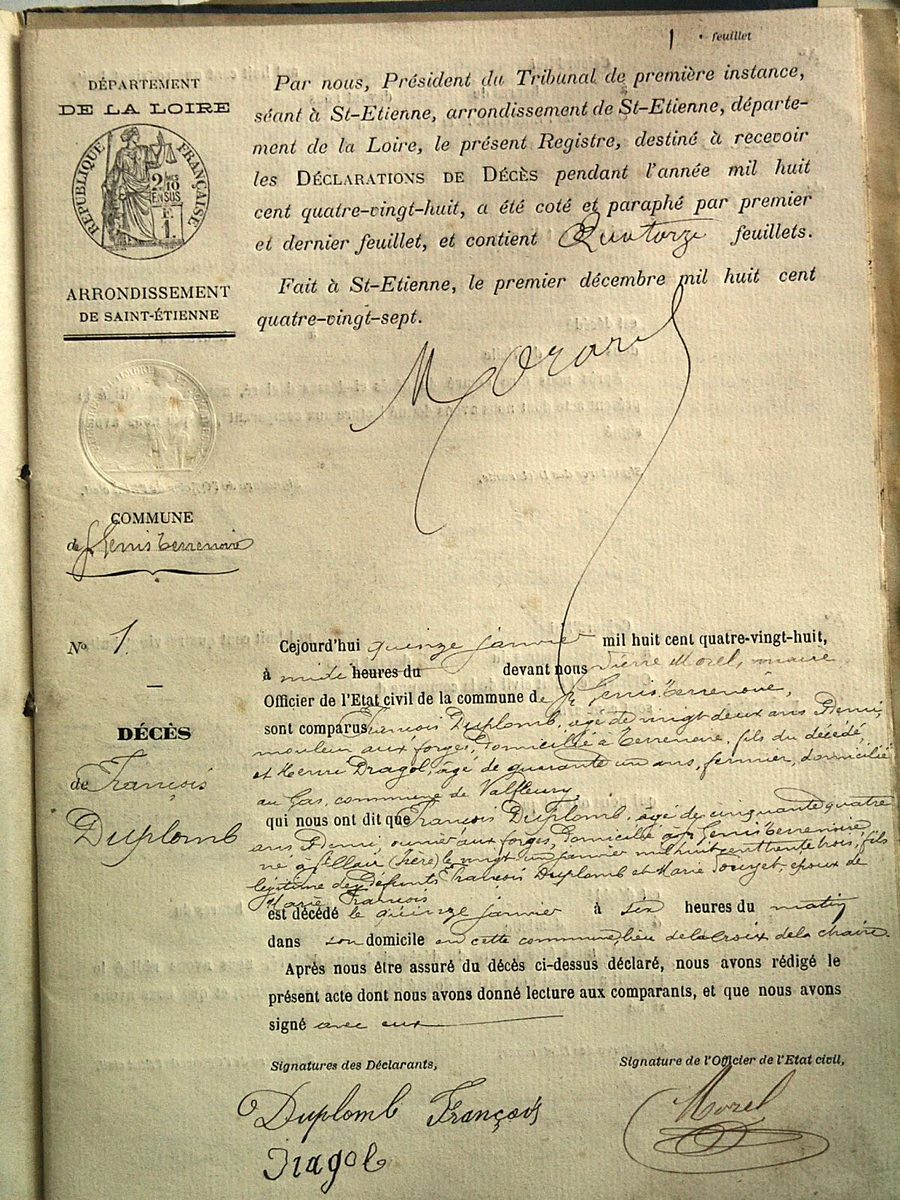 1 feuillet
DÉPARTEMENT
DE LA LOIRE
RÉPUBLIQUE FRANÇAISE
2/10
EN SUS
1F.
ARRONDISSEMENT
DE SAINT-ÉTIENNE
Par nous, Président du Tribunal de première instance,
séant à St-Etienne, arrondissement de St-Etienne, départe-
ment de la Loire, le présent Registre, destiné à recevoir
les DÉCLARATIONS DE DÉCÈS pendant l'année mil huit
cent quatre-vingt-huit, a été coté et paraphé par premier
et dernier feuillet, et contient Quatorze feuillets.
Fait à St-Etienne, le premier décembre mil huit cent
quatre-vingt-sept.
COMMUNE
de St Genis terrenoire
No 1
DÉCÈS
de François
Duplomb
Cejourd'hui quinze janvier mil huit cent quatre-vingt-huit,
à midi heures du devant nous Pierre Morel, maire
Officier de l'Etat civil de la commune de St Genis terrenoire,
sont comparus François Duplomb, âgé de vingt deux ans Demi,
mouleur aux forges, domicilié à terrenoire, fils du décédé,
et Henri Dragol, âgé de quarante un ans, fermier, domicilié
au Gas, commune de Valfleury,
qui nous ont dit que François Duplomb, âgé de cinquante quatre
ans Demi, ouvrier aux forges, domicilié à St Genis terrenoire
né à (Isère) le vingt un janvier mil huit cent trente trois, fils
légitime des défunts François Duplomb et Marie époux de
Marie François
est décédé le quinze janvier à six heures du matin
dans son domicile en cette commune, lieu de la Croix de la chaire.
Après nous être assuré du décès ci-dessus déclaré, nous avons rédigé le
présent acte dont nous avons donné lecture aux comparants, et que nous avons
signé avec eux
Signatures des Déclarants,
Signature de l'Officier de l'Etat civil,
Duplomb François
Dragol
Morel